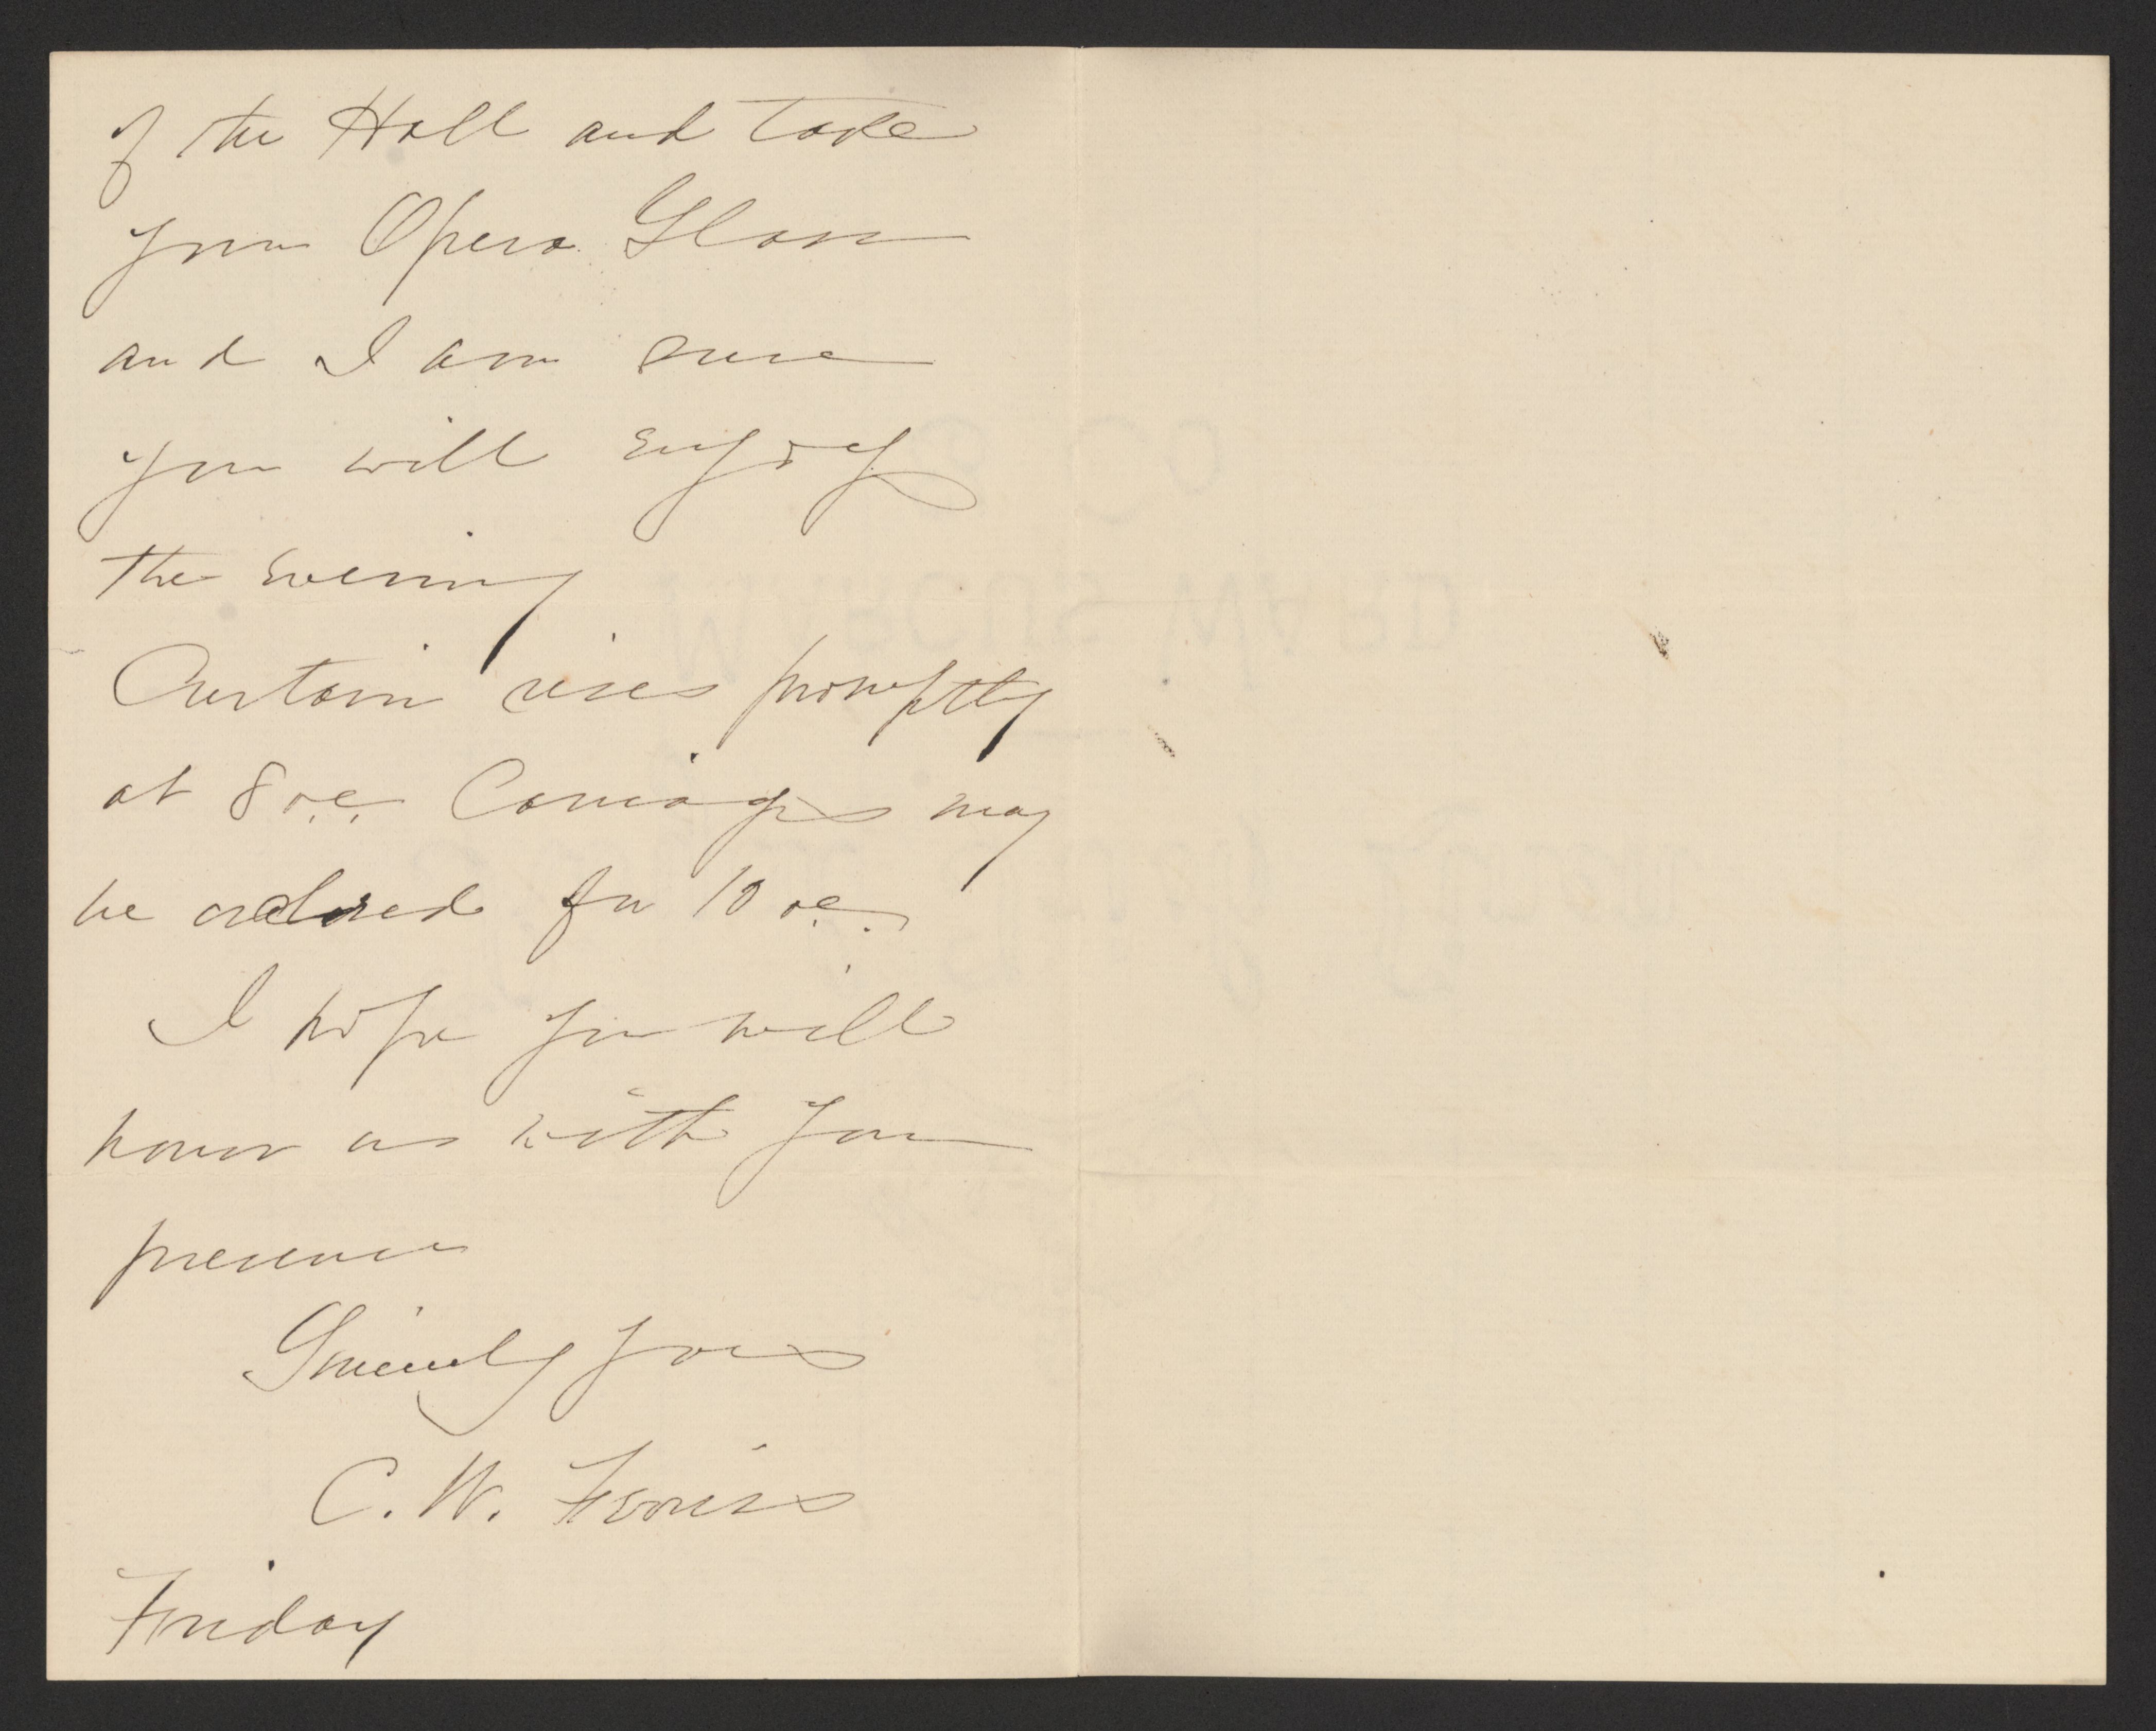 of the Hall and take
your Opera Glass
and I am sure
you will enjoy
the evening
Curtain rises promptly
at 8 o.c. Carriages may
be ordered for 10 o.c.
I hope you will
honor us with your
presence
Sincerely yours
C. W.
Friday
MARCUS WARD
& CO
Royal Irish Linen